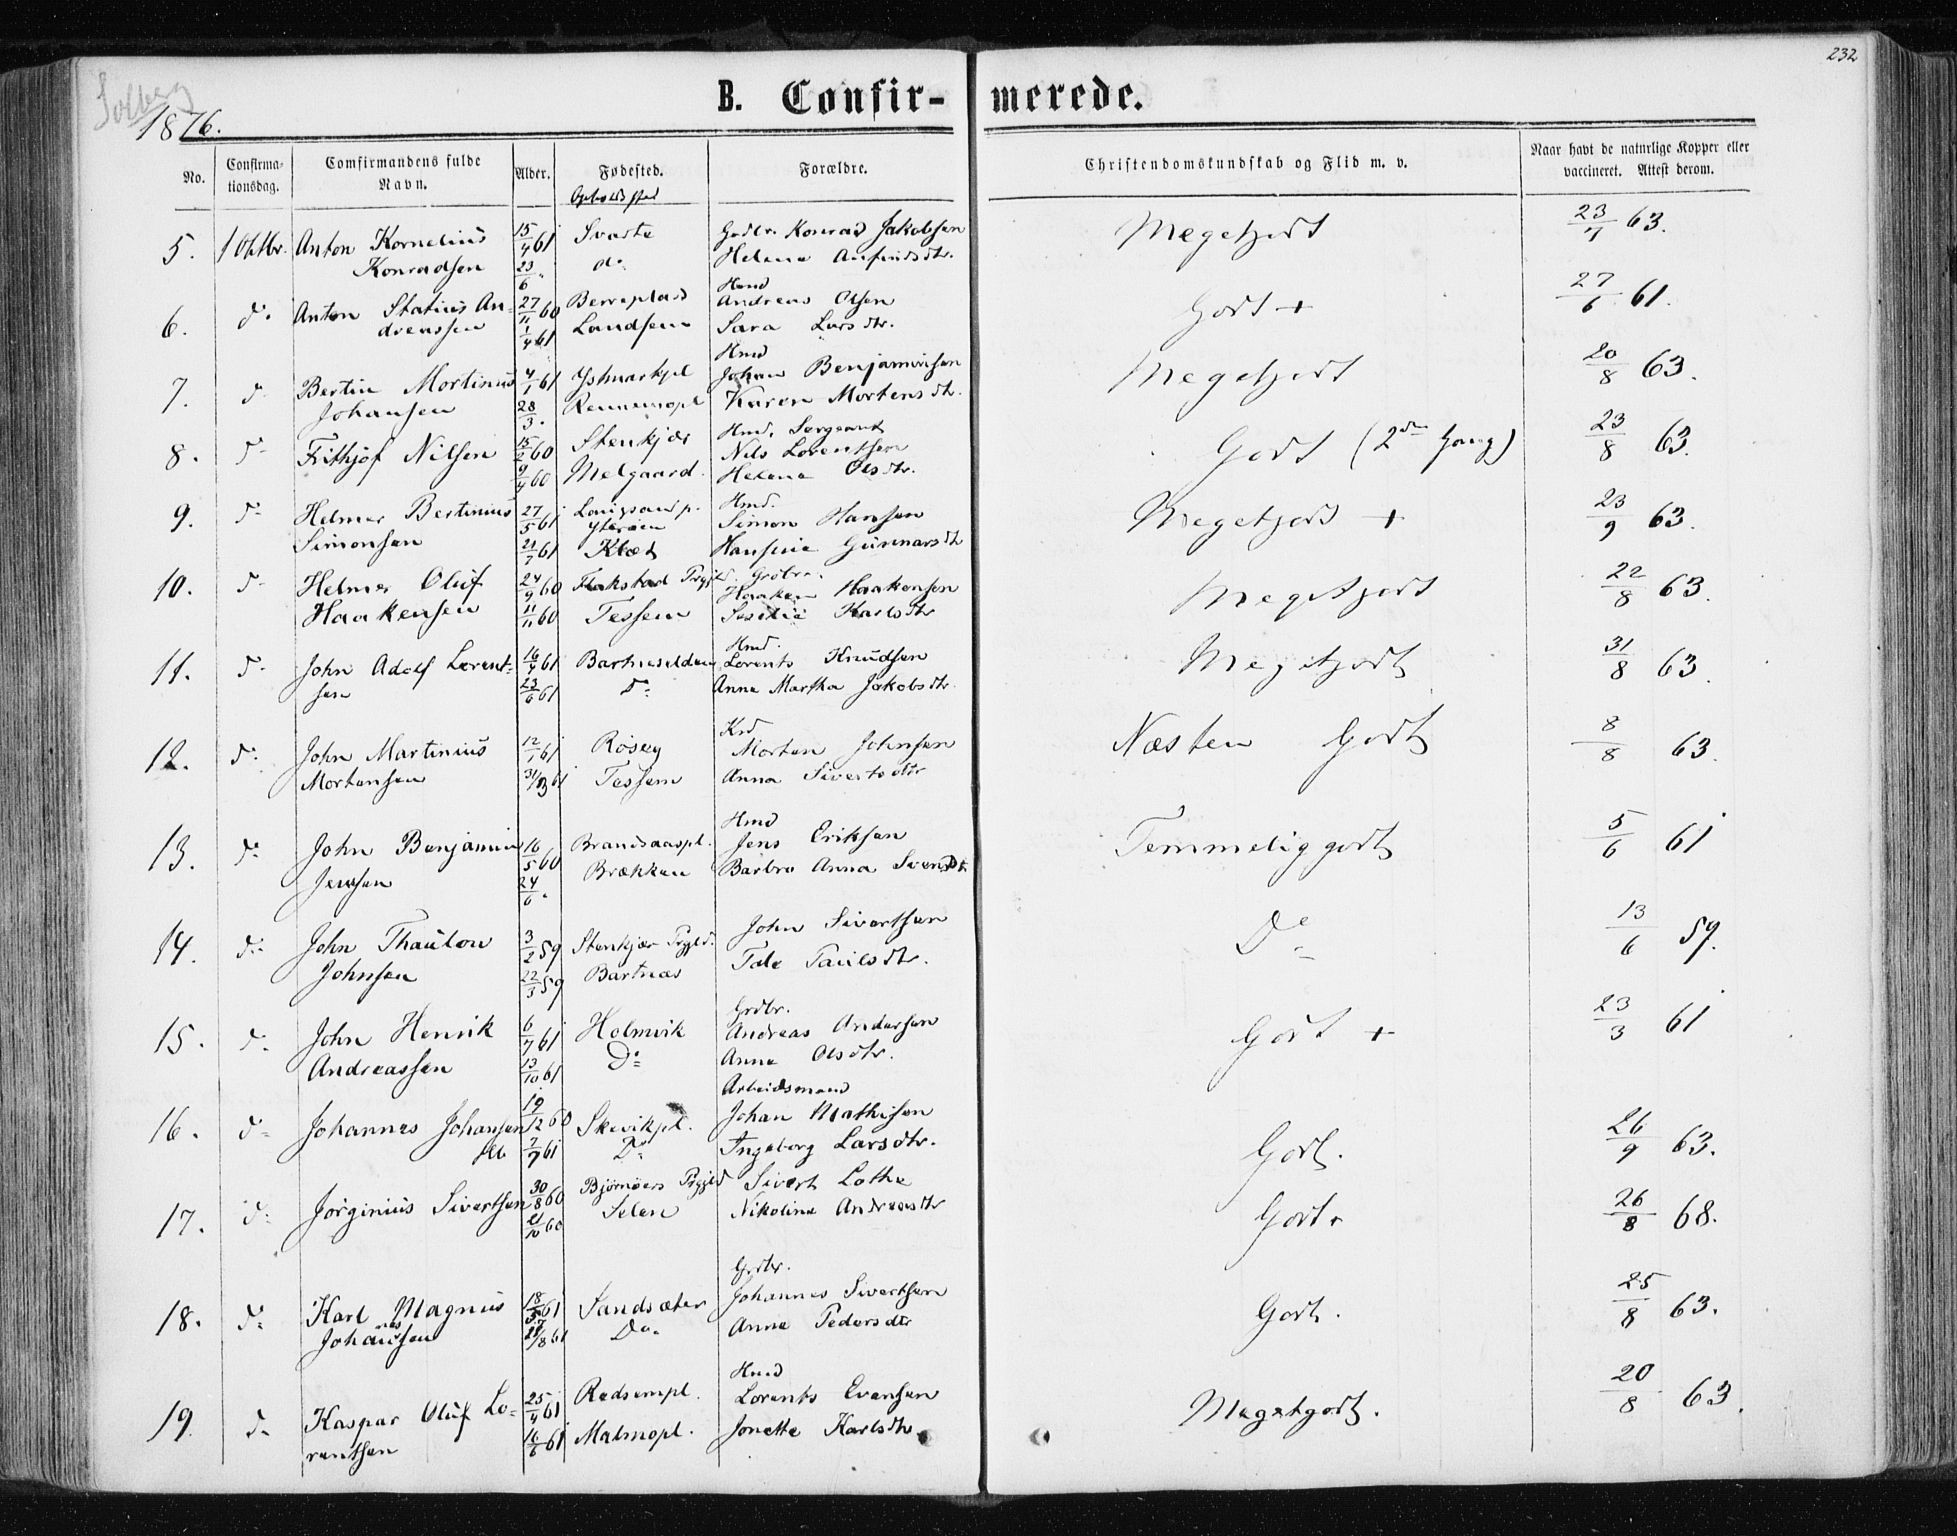 232
Solberg
1876.
B. Confir- merede.
No. Confirma-tionsdag. Comfirmandens fulde Navn. Alder. Fødested. Forældre. Christendomskundskab og Flid m. v. Naar havt de naturlige Kopper eller vaccineret. Attest derom.
Opholdssted
5. 1 Oktbr. Anton Kornelius 15/4 61 Svarte Grdbr. Konrad Jakobsen Megetgodt 23/7 63.
Konradsen 23/6 " do Helena Anfindsdtr.
Hmd
6. do Anton Statius An- 27/11 60 Berreplads Andreas Olsen Godt + 27/6 61.
dreassen 1/4 61 Landsem Sara Larsdtr.
Hmd
7. do Bertin Mortinus 4/1 61 Ystmarkpl Johan Benjaminsen Megetgodt 20/8 63.
Johansen 28/3 " Rennemopl Karen Mortensdtr.
Hmd. Sergeant
8. do Frithjof Nilsen 15/2 60 Stenkjær Nils Lorentsen Godt (2den Gang) 23/8 63.
9/4 60 Melgaard. Helena Olsdtr.
Hmd.
9. do Helmer Bertinius 27/5 61 Ytterøen Simon Hansen Megetgodt + 23/9 63.
Simonsen 21/7 61 Klæt Hansine Gunnarsdtr
10. do Helmer Oluf 24/9 60 Flakstad Prgjld. Grdbr. Haaken Haakensen Megetgodt 22/8 63.
Haakensen 11/11 60 Tessem Karlsdtr
Hmd.
11. do John Adolf Lorent- 16/4 61 Lorents Knudsen Megetgodt 31/8 63.
sen 23/6 61 do Anna Martha Jakobsdtr.
Krd
12. do John Martinius 12/1 61 Røseg Morten Johnsen Næsten Godt 8/8 63.
Mortensen 31/3 61 Tessem Anna Sivertsdtr
Hmd
13. do John Benjamin 16/5 60 Brandsaaspl. Jens Eriksen Temmelig godt 5/6 61
Jensen 24/6 " Brækken Barbro Anna Svensdtr
14. do John Thaulow 3/2 59 Stenkjær Prgjld. John Sivertsen Do 13/6 59.
Johnsen 22/3 59 Bartnes Tale Paulsdtr.
Grdbr.
15. do John Henrik 6/7 61 Holmvik Andreas Andersen Godt + 23/3 61
Andreassen 13/10 61 Do Anna Olsdtr.
Arbeidsmand
16. do Johannes Johansen 19/12 60 Skevikpl. Johan Mathisen Godt. 26/9 63.
7/7 61 Do Ingeborg Larsdtr.
17. do Jørginius Sivertsen 30/8 60 Bjørnørs Prgjld Sivert Lothe Godt. 26/8 68.
21/10 60 Selen Nikoline Andreasdtr
Grdbr.
18. do Karl Magnus 18/5 61 Sandsæter Johannes Sivertsen Godt. 25/8 63.
Johansen 61 Do Anna Pedersdtr
Hmd
19. do Kaspar Oluf Lo- 25/4 61 Rødsempl. Lorents Evensen Megetgodt. 20/8 63.
rentsen 16/6 61 Malmopl. Jonetta Karlsdtr.